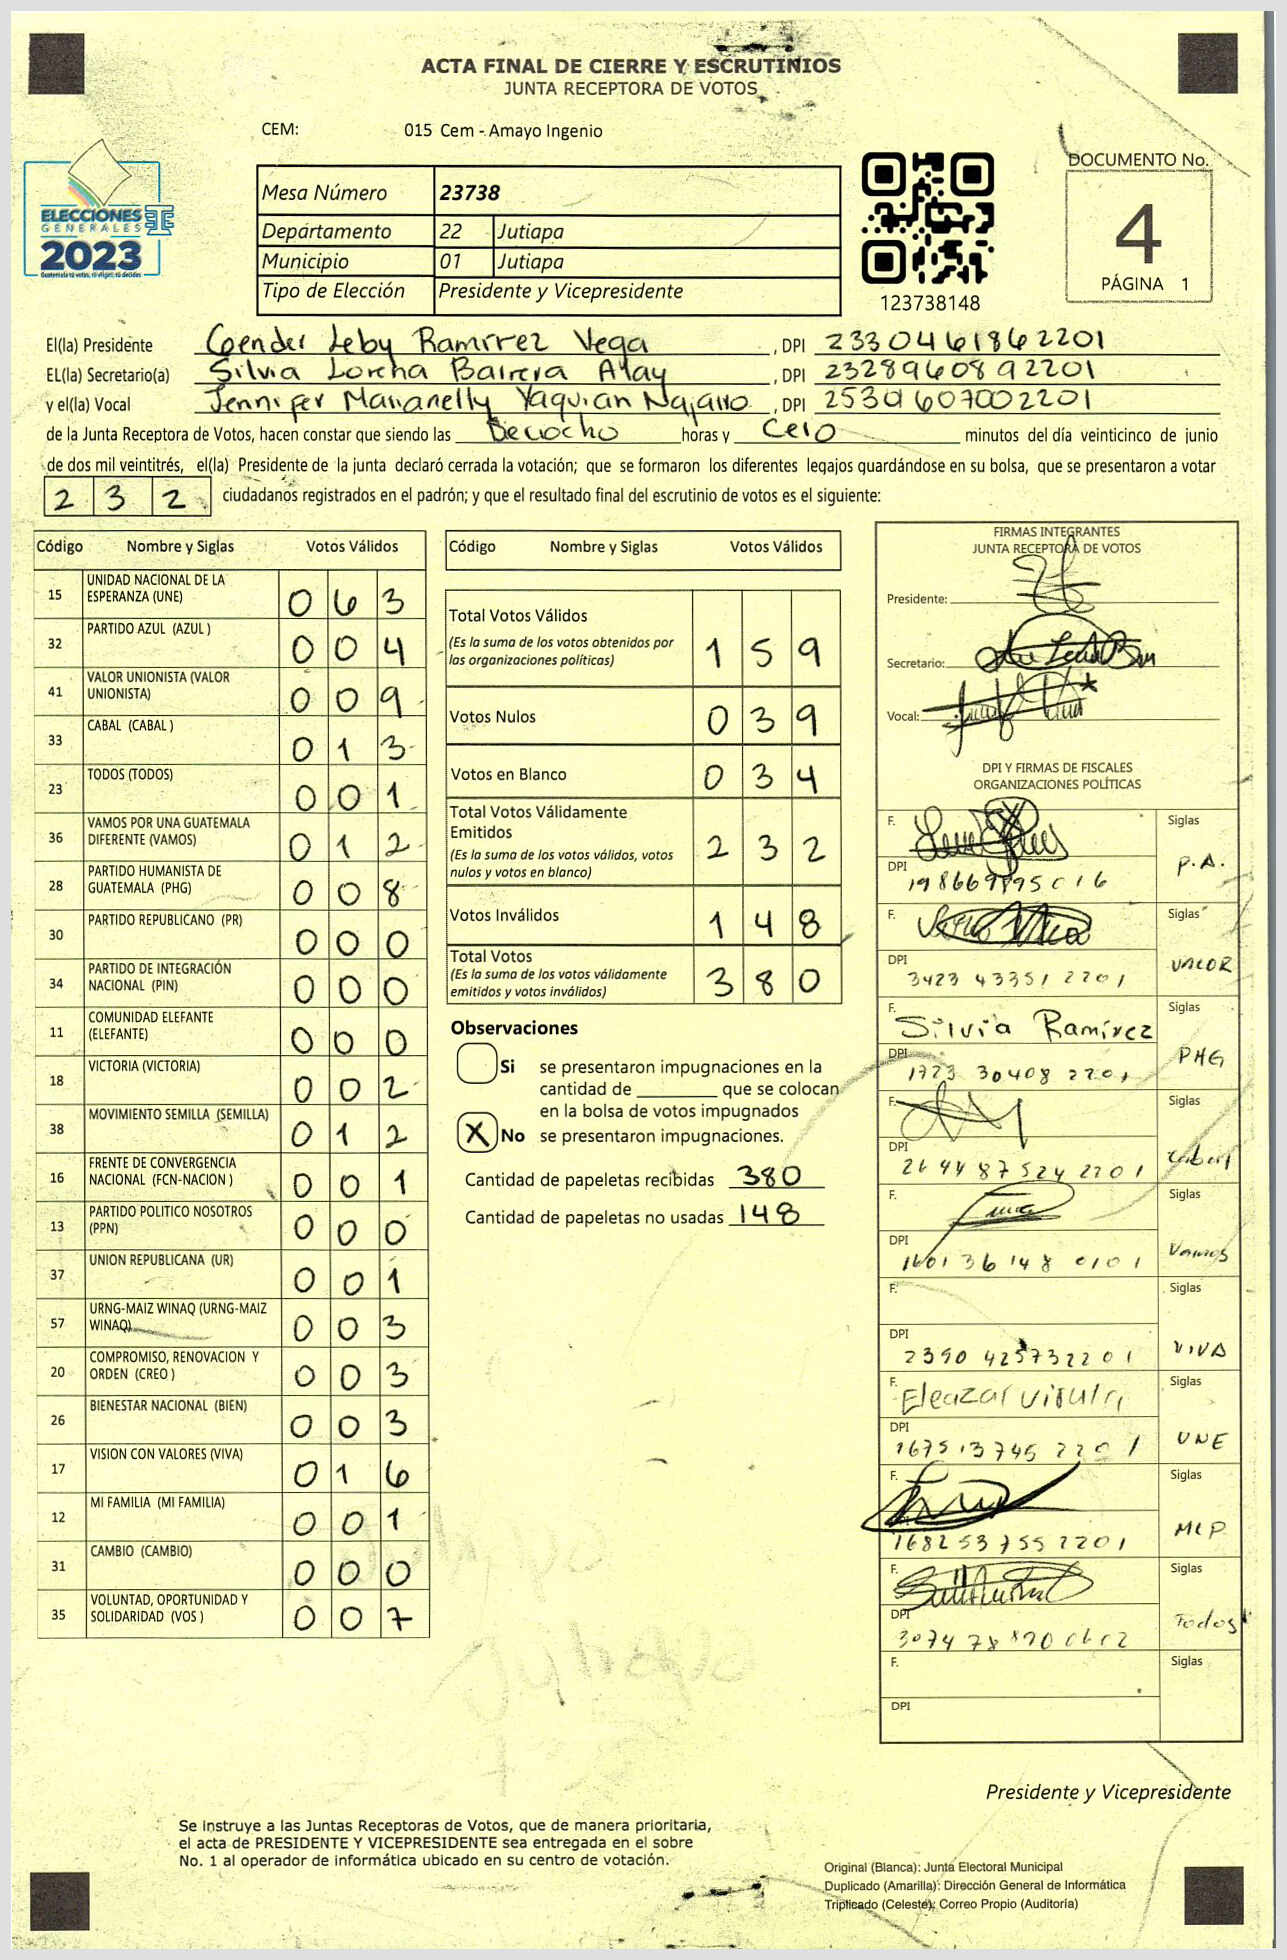 ACTA FINAL DE CIERRE Y ESCRUTINIOS
JUNTA RECEPTORA DE VOTOS
CEM: 015 Cem - Amayo Ingenio
ELECCIONES
GENERALES
2023
Mesa Número 23738
Departamento 22 Jutiapa
Municipio 01 Jutiapa
Tipo de Elección Presidente y Vicepresidente
123738148
DOCUMENTO No.
4
PÁGINA 1
El(la) Presidente Gender Leby Ramírez Vega, DPI 2330461862201
EL(la) Secretario(a) Silvia Lorena Barrera Alay, DPI 2328960892201
y el(la) Vocal Jennifer Marianelly Yaquian Najarro, DPI 2530607002201
de la Junta Receptora de Votos, hacen constar que siendo las Deciocho horas y Cero minutos del día veinticinco de junio
de dos mil veintitrés, el(la) Presidente de la junta declaró cerrada la votación; que se formaron los diferentes legajos guardándose en su bolsa, que se presentaron a votar
232 ciudadanos registrados en el padrón; y que el resultado final del escrutinio de votos es el siguiente:
Código Nombre y Siglas Votos Válidos
15 UNIDAD NACIONAL DE LA ESPERANZA (UNE) 063
32 PARTIDO AZUL (AZUL ) 004
41 VALOR UNIONISTA (VALOR UNIONISTA) 009
33 CABAL (CABAL ) 013
23 TODOS (TODOS) 001
36 VAMOS POR UNA GUATEMALA DIFERENTE (VAMOS) 012
28 PARTIDO HUMANISTA DE GUATEMALA (PHG) 008
30 PARTIDO REPUBLICANO (PR) 000
34 PARTIDO DE INTEGRACIÓN NACIONAL (PIN) 000
11 COMUNIDAD ELEFANTE (ELEFANTE) 000
18 VICTORIA (VICTORIA) 002
38 MOVIMIENTO SEMILLA (SEMILLA) 012
16 FRENTE DE CONVERGENCIA NACIONAL (FCN-NACION ) 001
13 PARTIDO POLITICO NOSOTROS (PPN) 000
37 UNION REPUBLICANA (UR) 001
57 URNG-MAIZ WINAQ (URNG-MAIZ WINAQ) 003
20 COMPROMISO, RENOVACION Y ORDEN (CREO ) 003
26 BIENESTAR NACIONAL (BIEN) 003
17 VISION CON VALORES (VIVA) 016
12 MI FAMILIA (MI FAMILIA) 001
31 CAMBIO (CAMBIO) 000
35 VOLUNTAD, OPORTUNIDAD Y SOLIDARIDAD (VOS ) 007
Código Nombre y Siglas Votos Válidos
Total Votos Válidos 159
(Es la suma de los votos obtenidos por
las organizaciones políticas)
Votos Nulos 039
Votos en Blanco 034
Total Votos Válidamente
Emitidos 232
(Es la suma de los votos válidos, votos
nulos y votos en blanco)
Votos Inválidos 148
Total Votos 380
(Es la suma de los votos válidamente
emitidos y votos inválidos)
Observaciones
Si se presentaron impugnaciones en la
cantidad de ________ que se colocan
en la bolsa de votos impugnados
X No se presentaron impugnaciones.
Cantidad de papeletas recibidas 380
Cantidad de papeletas no usadas 148
FIRMAS INTEGRANTES
JUNTA RECEPTORA DE VOTOS
Presidente:
Secretario:
Vocal:
DPI Y FIRMAS DE FISCALES
ORGANIZACIONES POLÍTICAS
F. Siglas P.A.
DPI
F. Siglas VALOR
DPI 3423 43351 2201
F. Silvia Ramírez Siglas PHG
DPI 1723 30408 2201
F. Siglas
DPI 2644 87524 2201
F. Siglas Vamos
DPI 1601 36148 0101
F. Siglas VIVA
DPI 2390 42573 2201
F. Eleazar Siglas UNE
DPI 1675 13745 2201
F. Siglas MLP
1682 53755 2201
F. Siglas Todos
DPI
F. Siglas
DPI
Presidente y Vicepresidente
Se instruye a las Juntas Receptoras de Votos, que de manera prioritaria,
el acta de PRESIDENTE Y VICEPRESIDENTE sea entregada en el sobre
No. 1 al operador de informática ubicado en su centro de votación.
Original (Blanca): Junta Electoral Municipal
Duplicado (Amarilla): Dirección General de Informática
Triplicado (Celeste): Correo Propio (Auditoría)